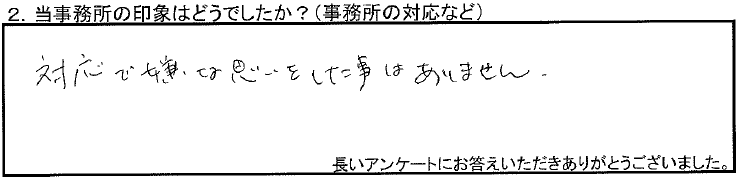 2．当事務所の印象はどうでしたか？（事務所の対応など）
対応で嫌な思いをした事はありません．
長いアンケートにお答えいただきありがとうございました。